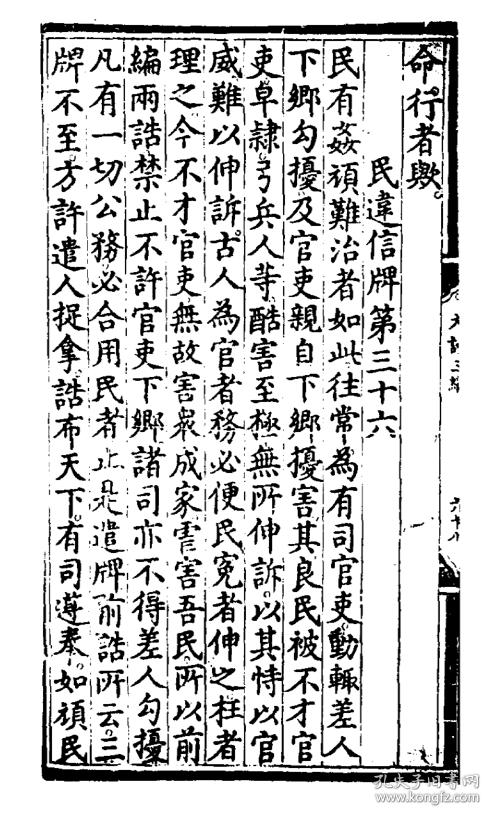 命行者歟
民違信牌第三十六
民有姦頑難治者如此往常為有司官吏動輒差人
下鄉勾擾及官吏親自下鄉擾害其良民被不才官
吏皁隷弓兵人等酷害至極無所伸訴以其恃以官
威難以伸訴古人為官者務必便民寃者伸之枉者
理之今不才官吏無故害衆成家害吾民所以前
編兩誥禁止不許官吏下鄉諸司亦不得差人勾擾
凡有一切公務必合用民者止是遣牌前誥所云三
牌不至方許遣人捉拿誥布天下有司遵奉如頑民
大誥三編
孔夫子旧书网
www.kongfz.com